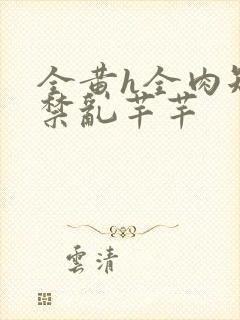 全黄h全肉短
禁亂芊芊
雲清